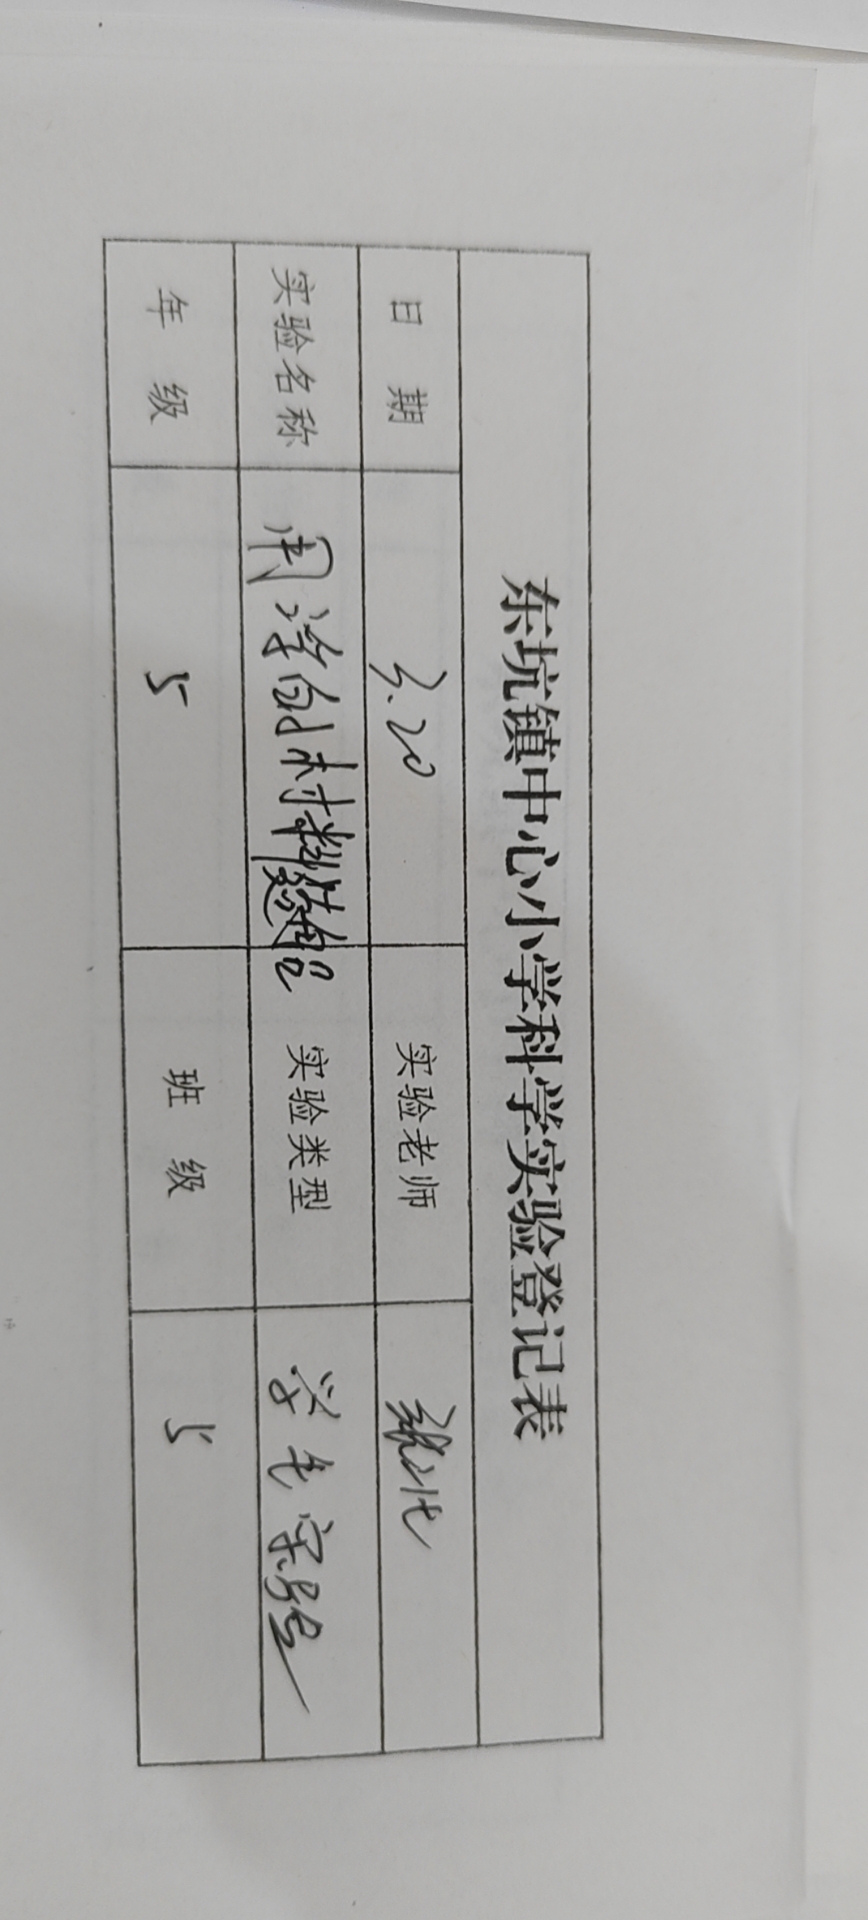 东坑镇中心小学科学实验登记表
日 期 3.20 实验老师
实验名称 用浮的材料造船 实验类型 学生实验
年 级 5 班 级 5